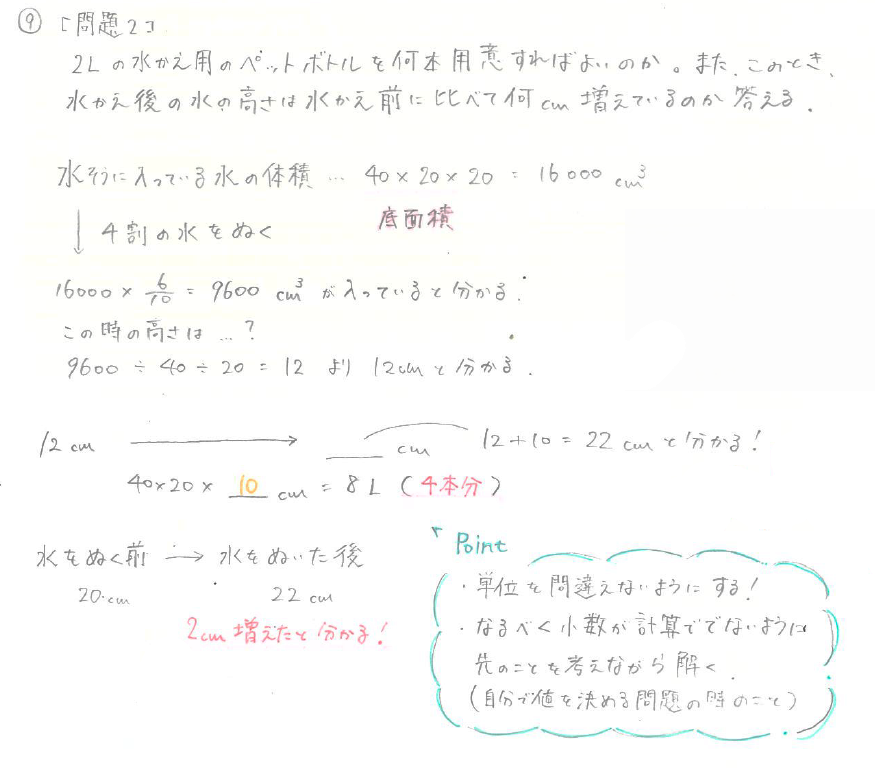 ⑨ [問題2]
2Lの水かえ用のペットボトルを何本用意すればよいのか。また、このとき、
水かえ後の水の高さは水かえ前に比べて何cm増えているのか答える.
水そうに入っている水の体積 … 40×20×20 = 16000 cm³
底面積
↓ 4割の水をぬく
16000 × 6/10 = 9600 cm³ が入っていると分かる.
この時の高さは…?
9600 ÷ 40 ÷ 20 = 12 より 12cmと分かる.
12 cm → ___ cm 12+10 = 22 cmと分かる!
40×20× 10 cm = 8L (4本分)
水をぬく前 → 水をぬいた後
20cm 22cm
2cm増えたと分かる!
Point
・単位を間違えないようにする!
・なるべく小数が計算ででないように
先のことを考えながら解く.
(自分で値を決める問題の時のこと)